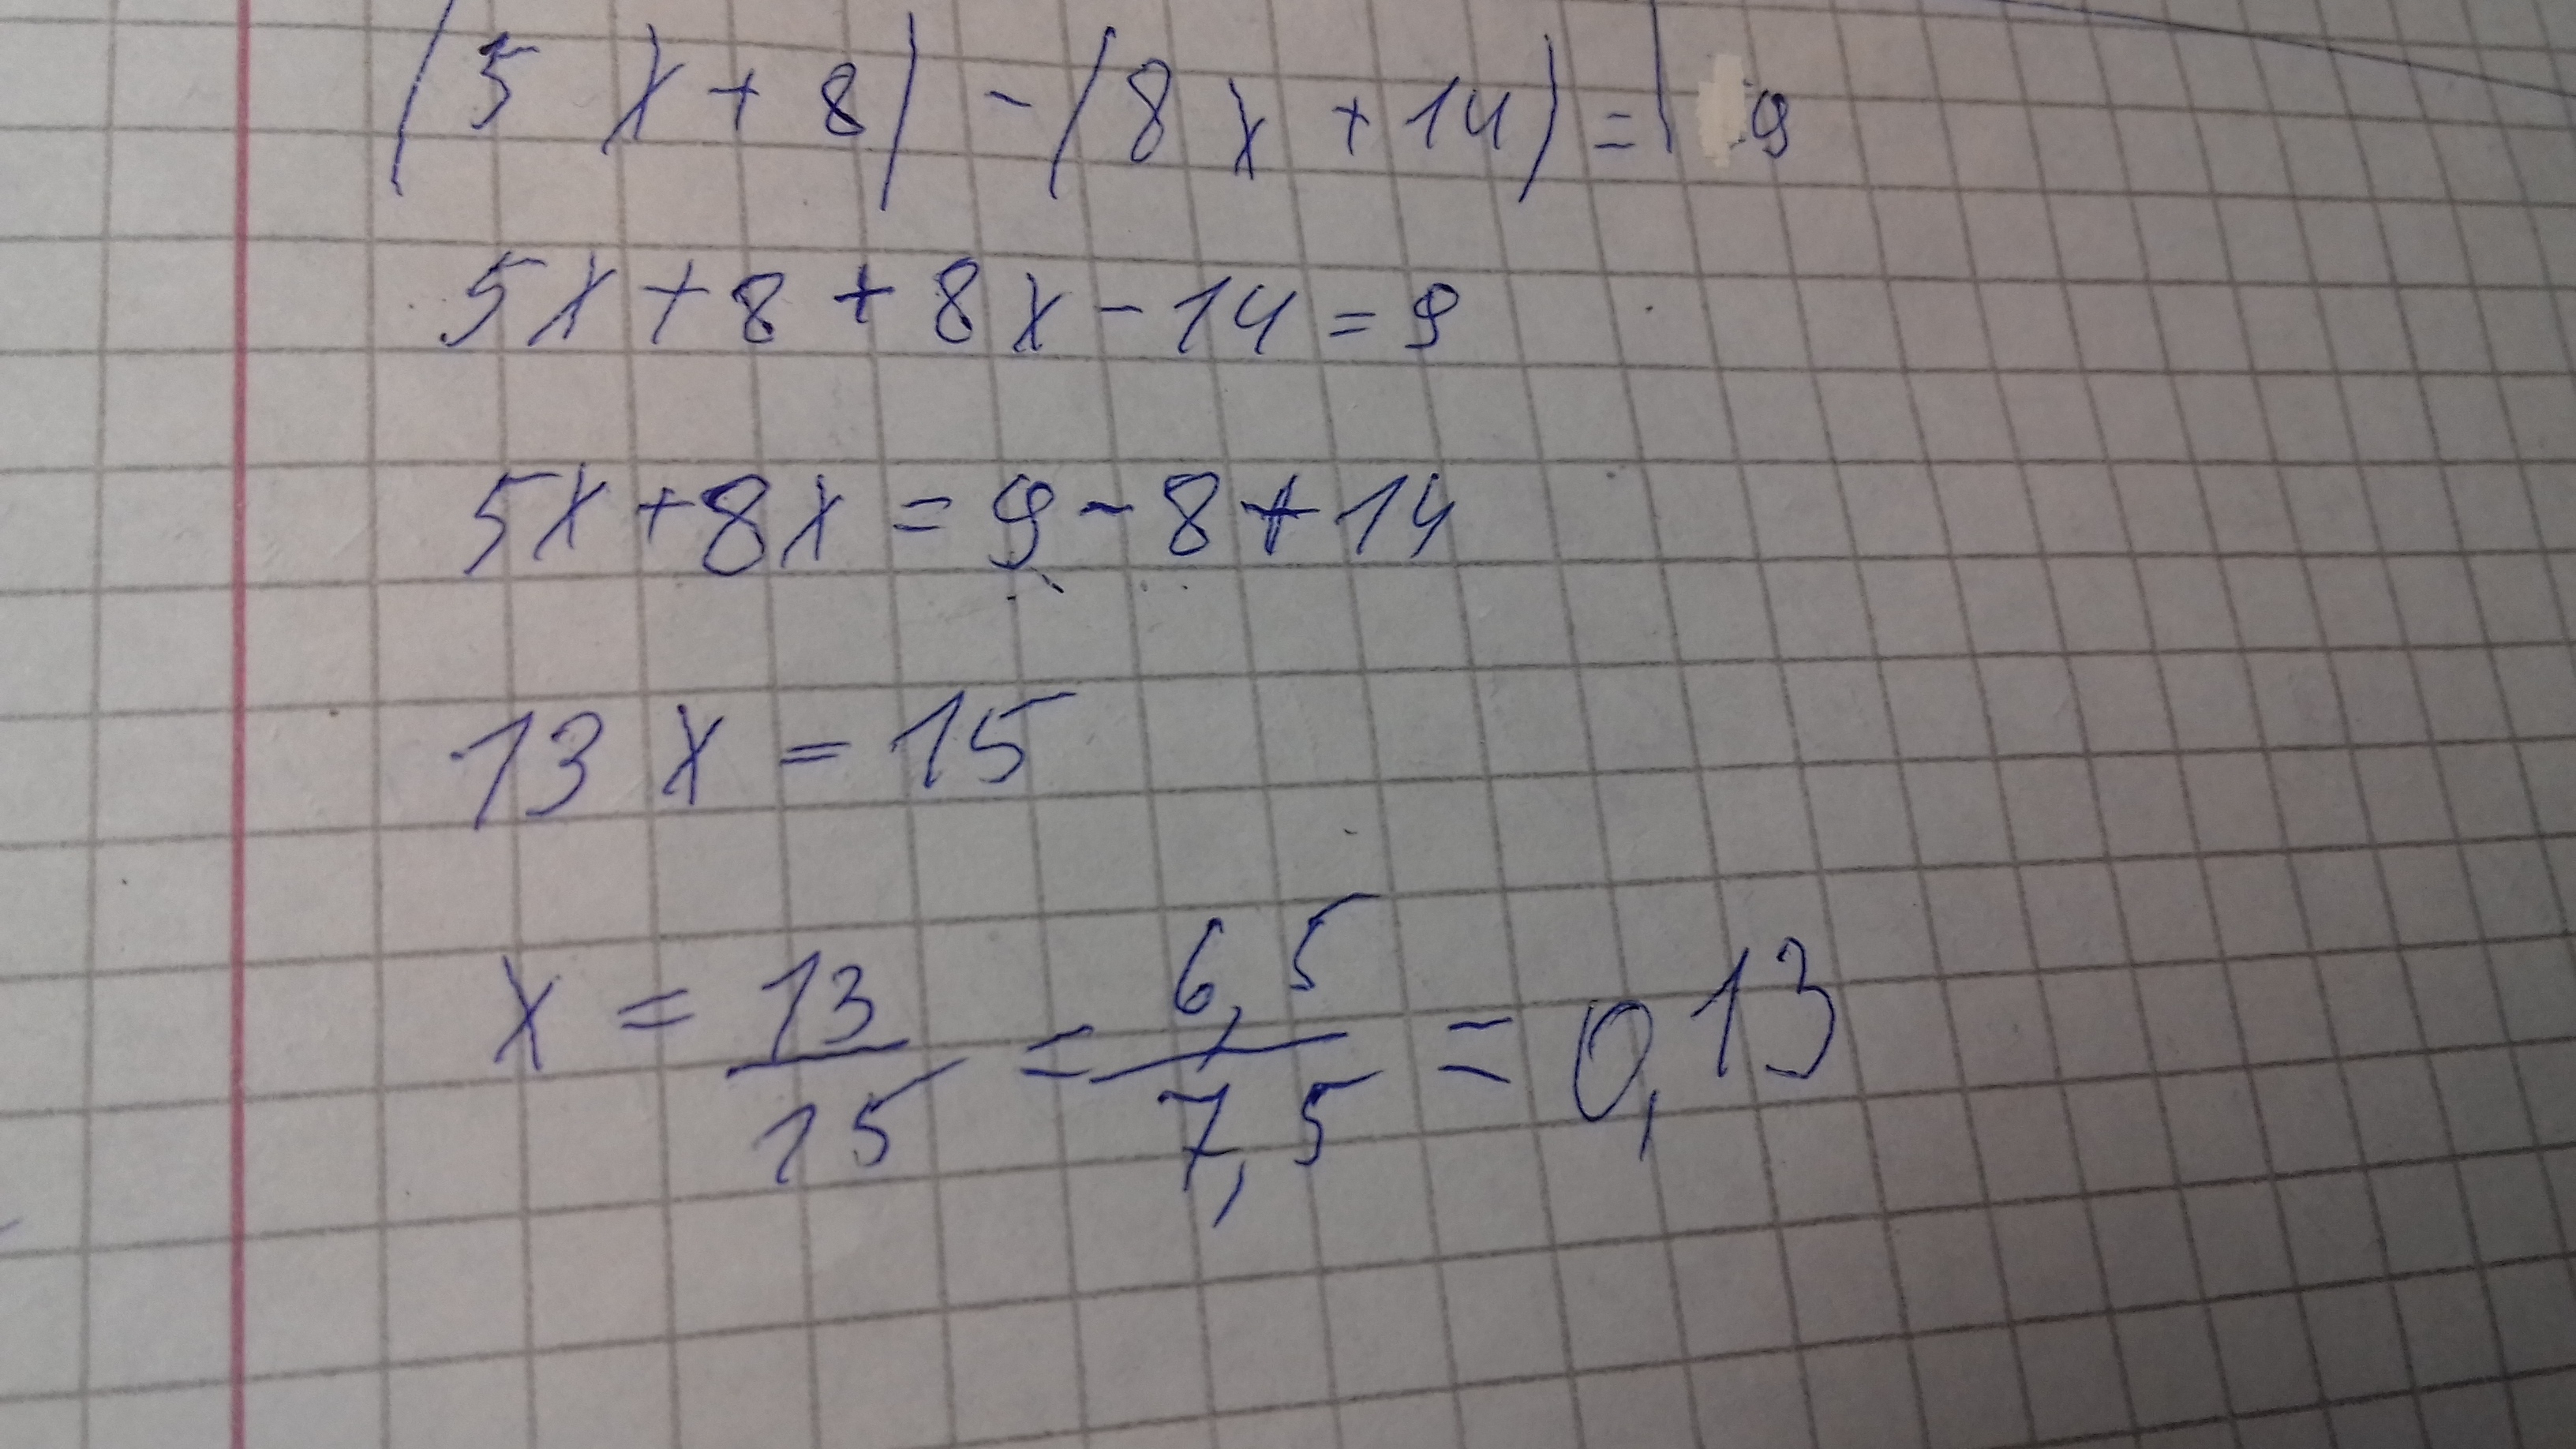 (5x+8)-(8x+14)=9
5x+8+8x-14=9
5x+8x=9-8+14
13x=15
x=13/15=6,5/7,5=0,13